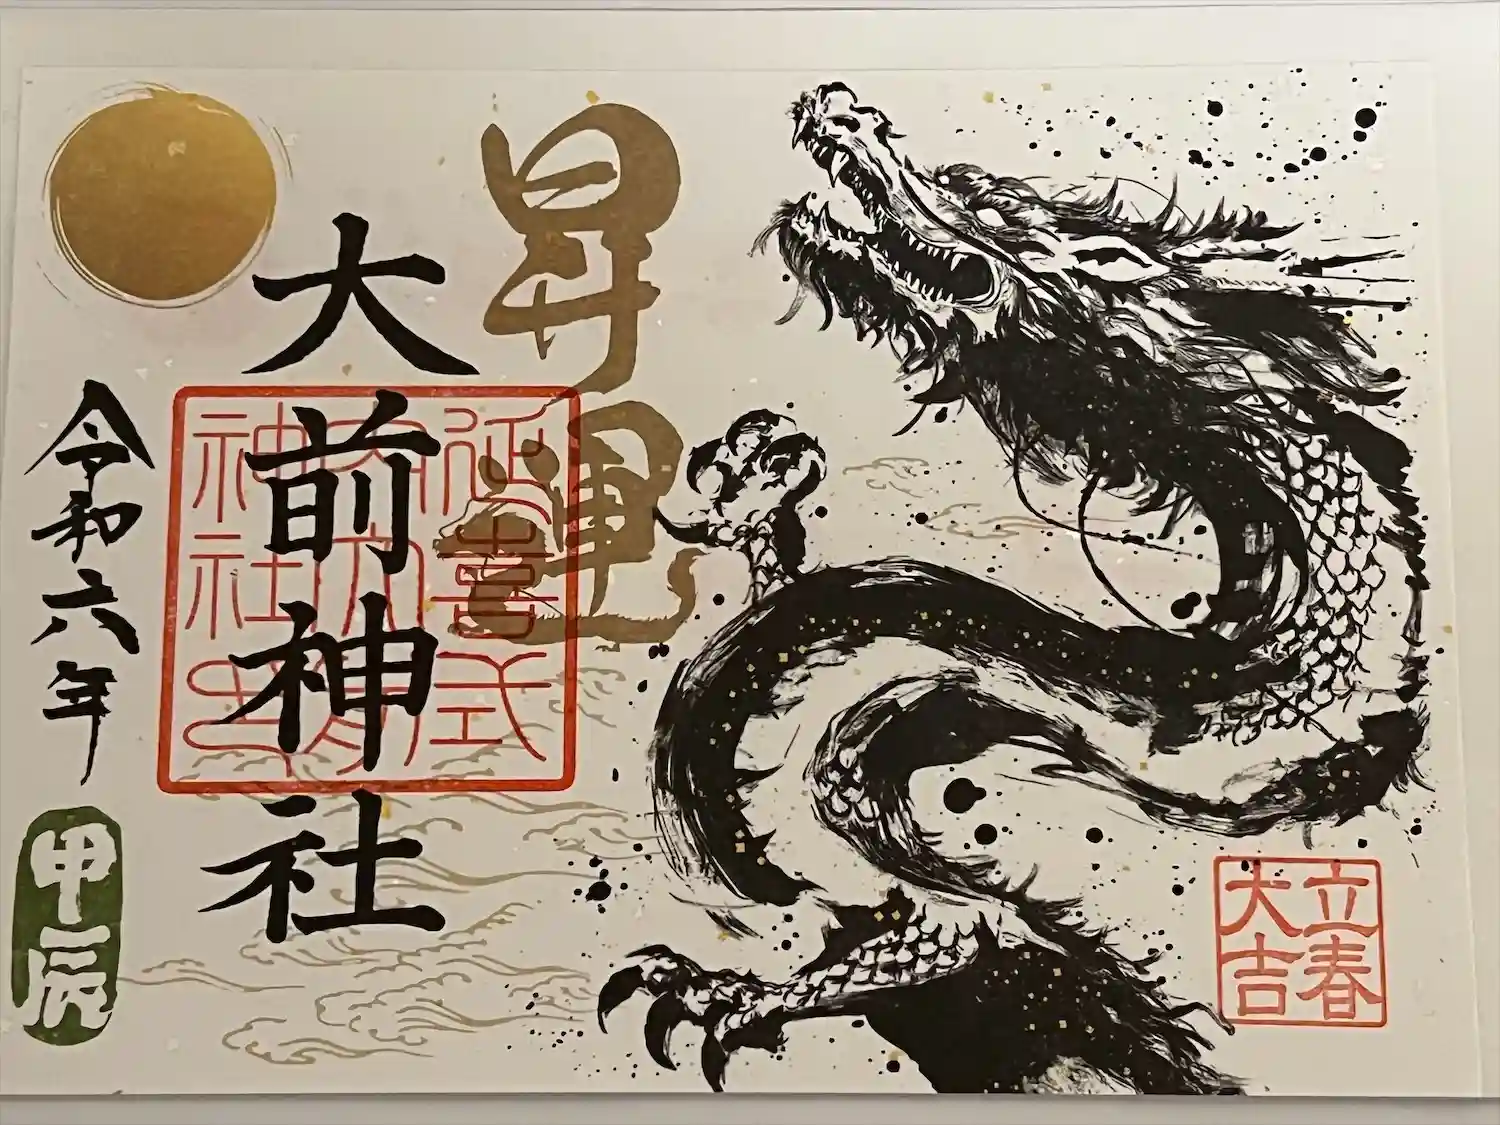 昇運
大前神社
延喜式
内大前
神社
令和六年
甲辰
立春
大吉